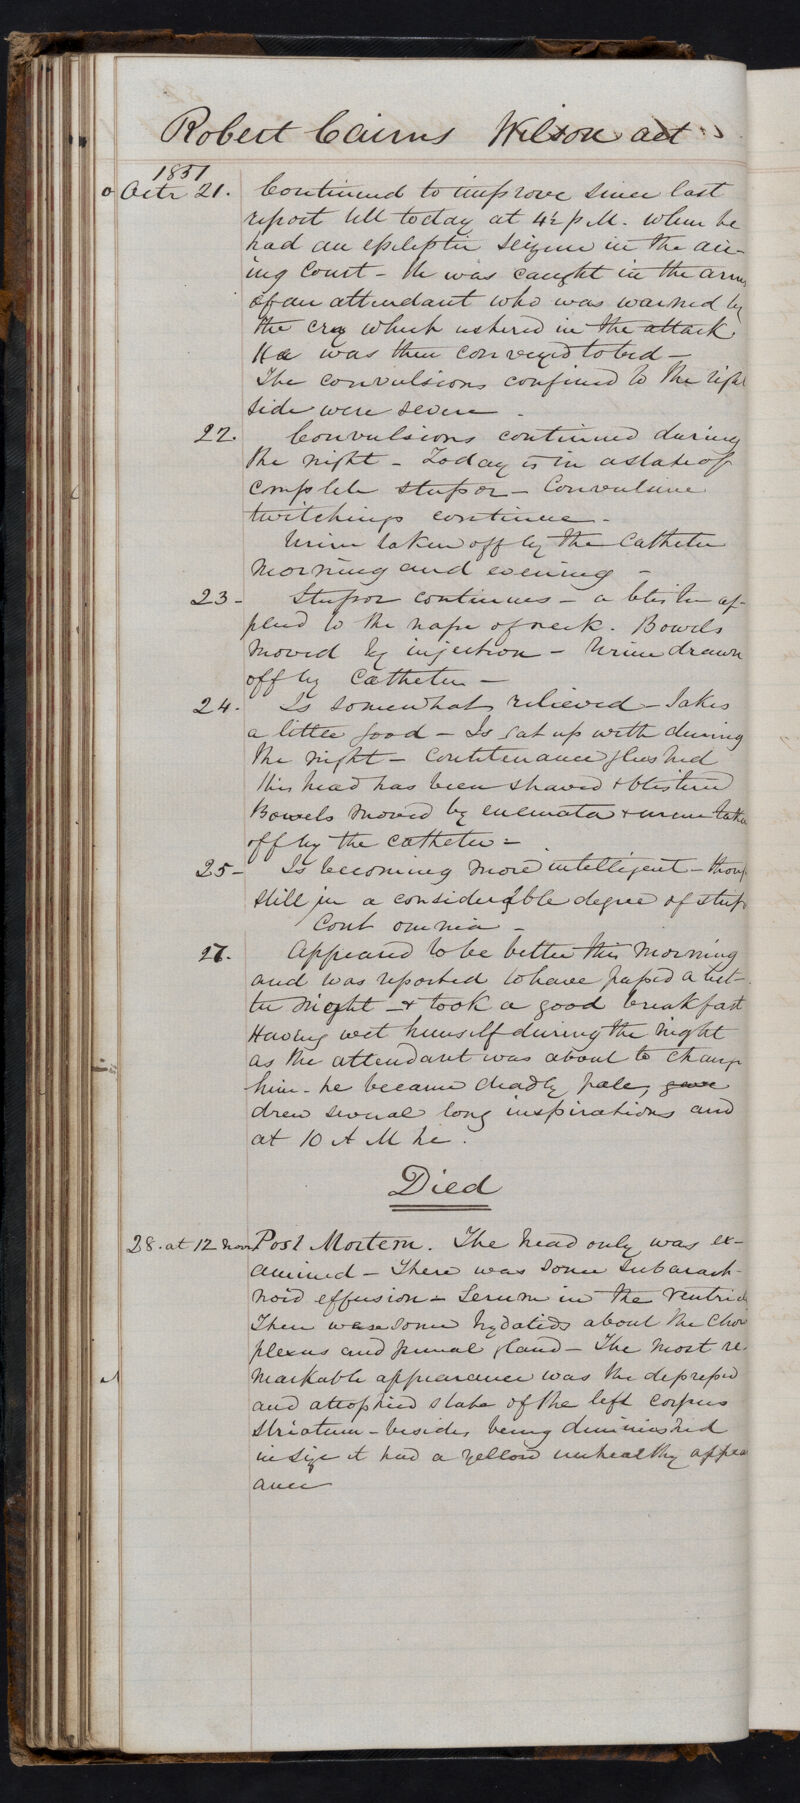 Robert Cairns Wilson aet
1851
Octr 21. Continued to improve since last
report till today at 4½ P.M. when he
had an epileptic seizure in the air-
ing Court - He was caught in the arms
of an attendant who was warned by
the cry which ushered in the attack.
He was then conveyed to bed -
The convulsions confined to the right
side were severe.
22. Convulsions continued during
the night - Today is in a state of
complete stupor - Convulsive
twitchings continue -
Urine taken off by the Catheter
morning and evening -
23 - Stupor continues - a blister ap-
plied to the nape of neck. Bowels
moved by injection - Urine drawn
off by Catheter -
24. Is somewhat relieved - Takes
a little food - Is sat up with during
the night - Countenance flushed
His head has been shaved + blistered
Bowels moved by enemata + urine taken
off by the catheter -
25 - Is becoming more intelligent - thoug
still in a considerable degree of stup
Cont omnia -
27. Appeared to be better this morning
and was reported to have passed a bet-
ter night - + took a good breakfast
Having wet himself during the night
as the attendant was about to change
him - he became deadly pale, gave
drew several long inspirations and
at 10 A M he.
Died
28. at 12 noon Post Mortem. The head only was ex-
amined - There was some Subarach-
noid effusion - Serum in the Ventricl
There were some hydatids about the Choro
plexus and pineal gland - The most re-
markable appearance was the depressed
and atrophied state of the left corpus
striatum - besides being diminished
in size it had a yellow unhealthy appea
ance